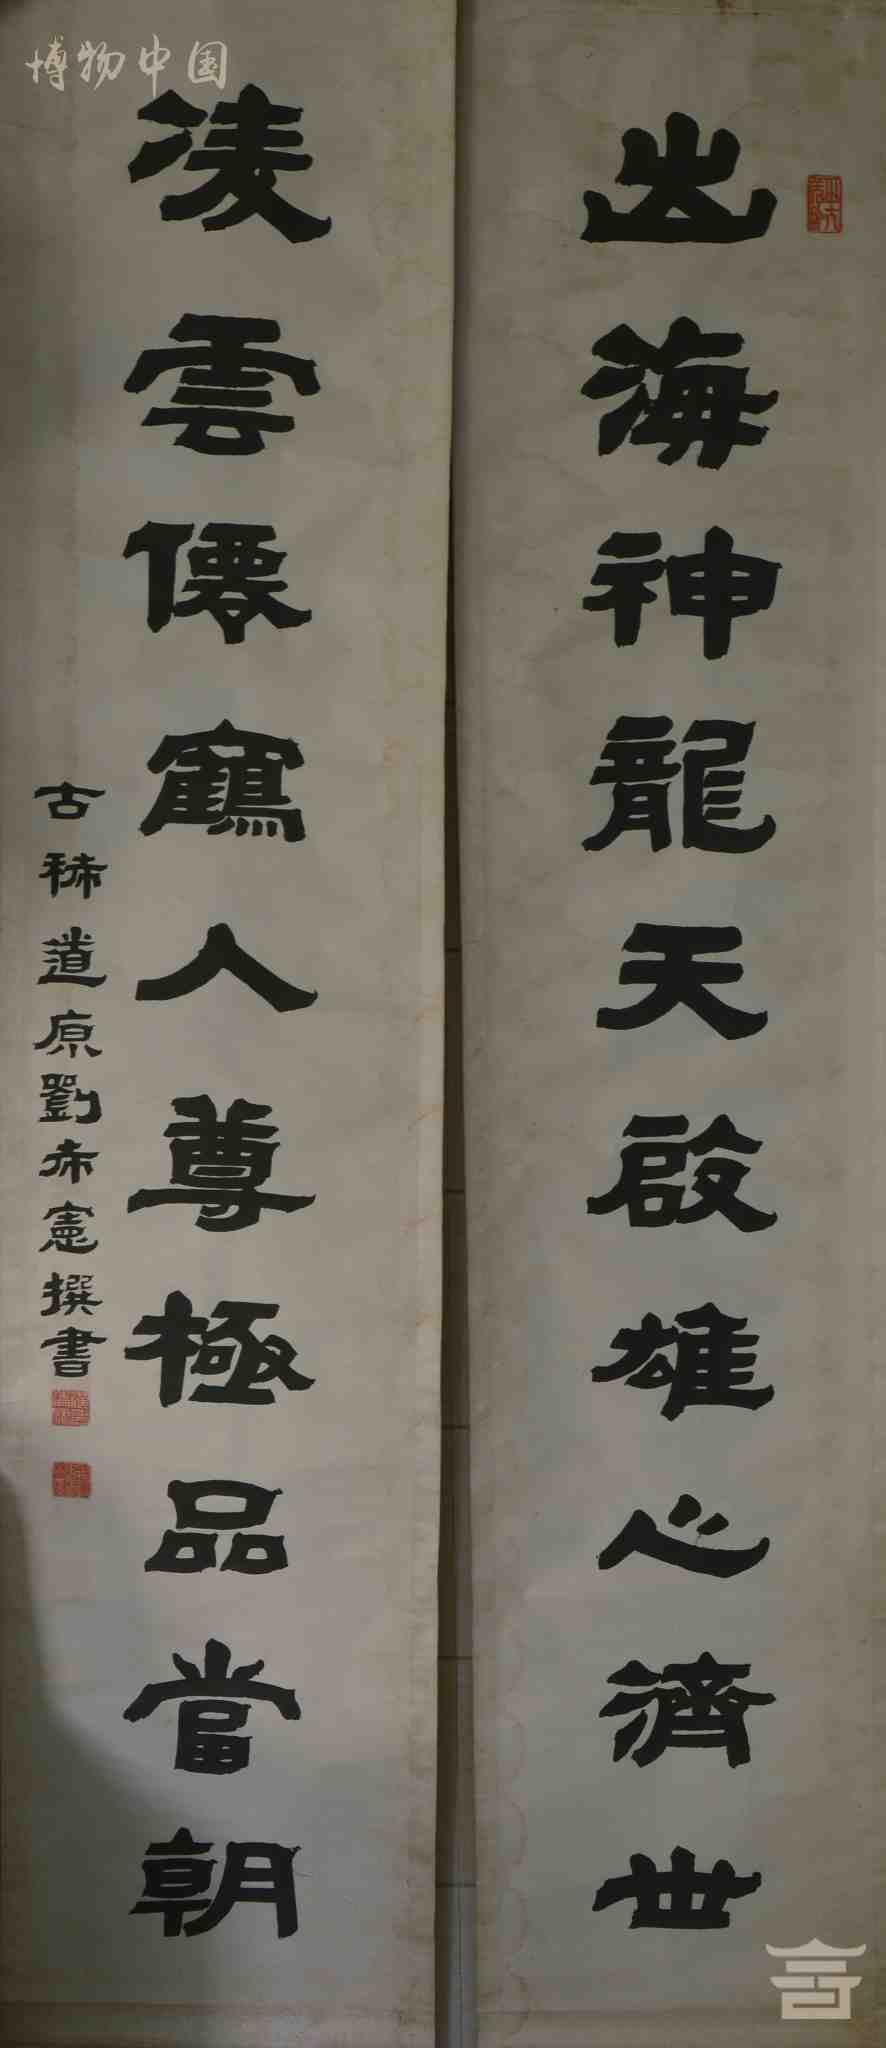 博物中国
出海神龍天啟雄心濟世
凌雲僊鶴人尊極品當朝
古稀道原劉希憲撰書